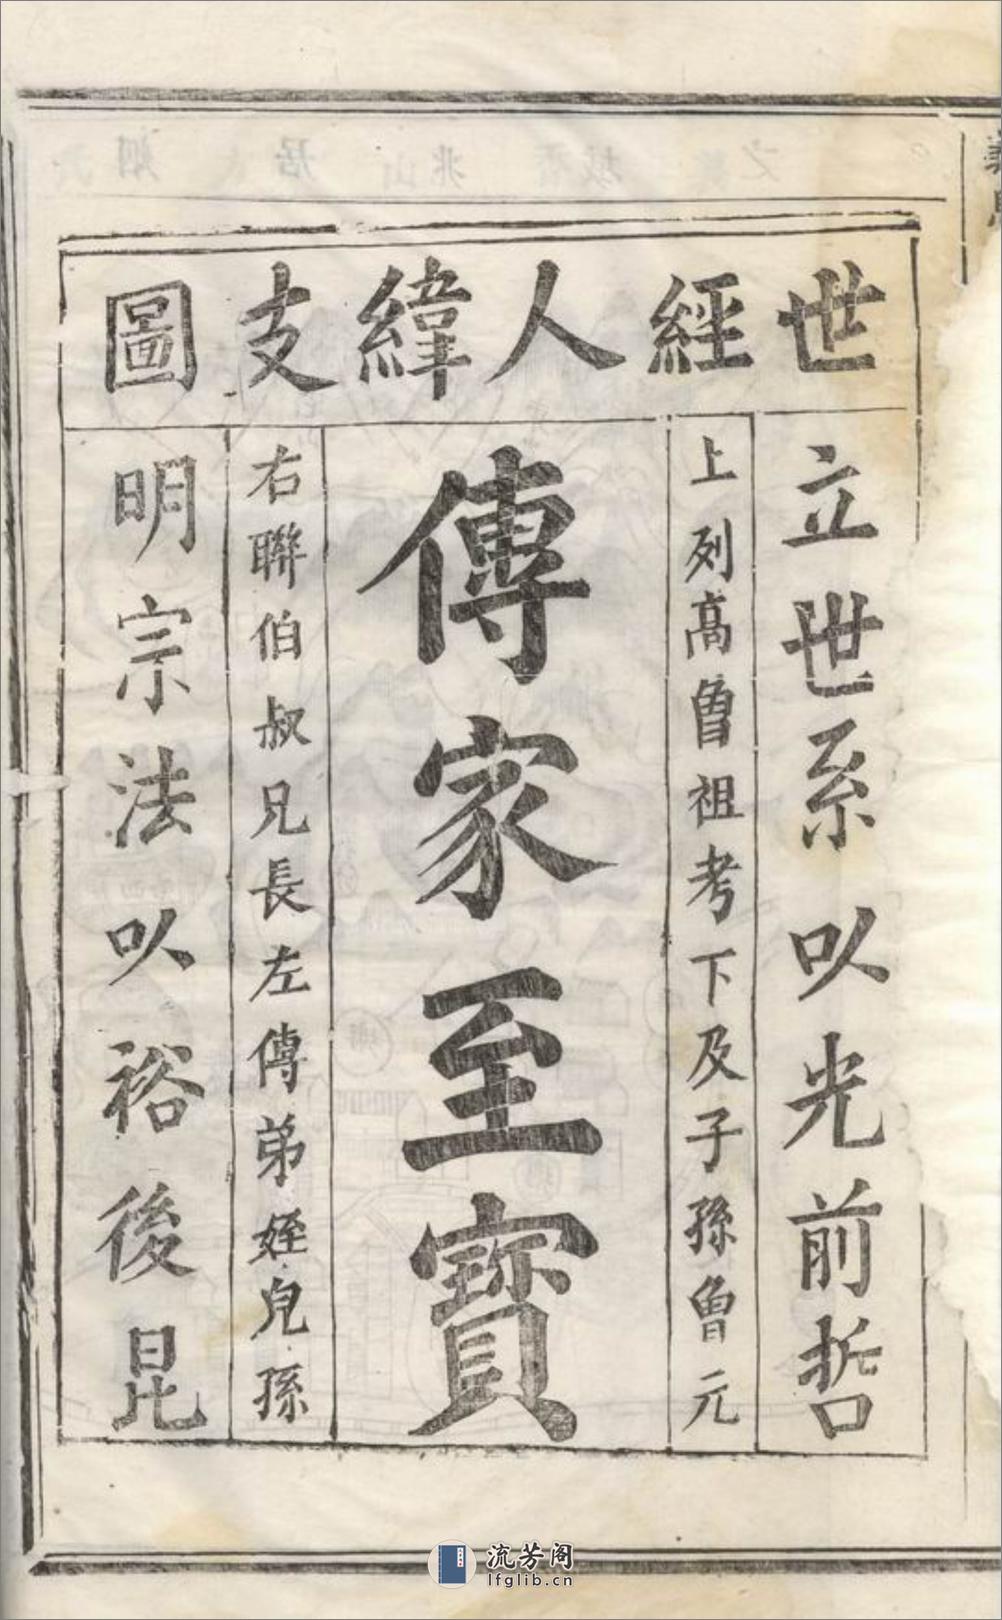 世經人緯支圖
立世系以光前哲
上列高曾祖考下及子孫曾元
傳家至寳
右聯伯叔兄長左傳弟姪兒孫
明宗法以裕後昆
流芳阁
lfglib.cn